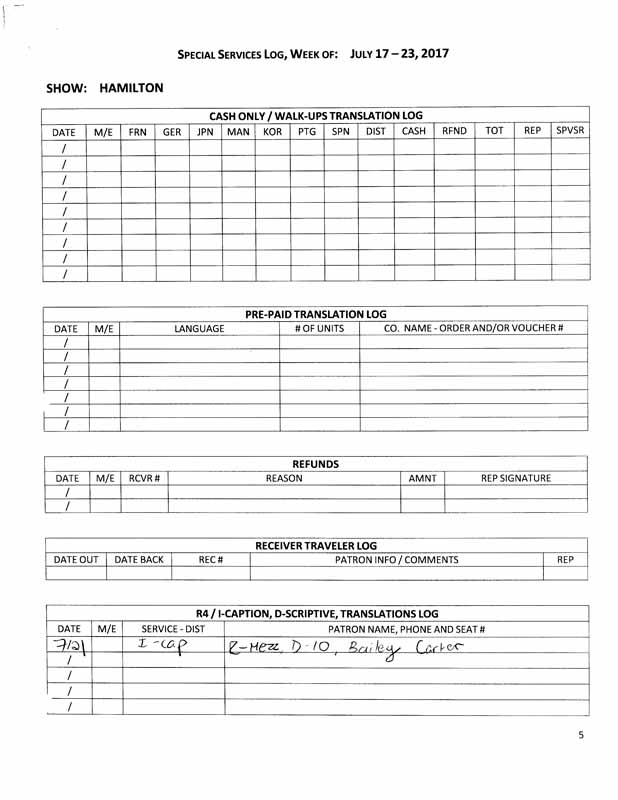 SPECIAL SERVICES LOG, WEEK OF: JULY 17 – 23, 2017
SHOW: HAMILTON
CASH ONLY / WALK-UPS TRANSLATION LOG
DATE M/E FRN GER JPN MAN KOR PTG SPN DIST CASH RFND TOT REP SPVSR
/
/
/
/
/
/
/
/
/
PRE-PAID TRANSLATION LOG
DATE M/E LANGUAGE # OF UNITS CO. NAME - ORDER AND/OR VOUCHER #
/
/
/
/
/
/
/
REFUNDS
DATE M/E RCVR # REASON AMNT REP SIGNATURE
/
/
RECEIVER TRAVELER LOG
DATE OUT DATE BACK REC # PATRON INFO / COMMENTS REP
R4 / I-CAPTION, D-SCRIPTIVE, TRANSLATIONS LOG
DATE M/E SERVICE - DIST PATRON NAME, PHONE AND SEAT #
7/21 I-cap R-Mezz D-10, Bailey Carter
/
/
/
/
5